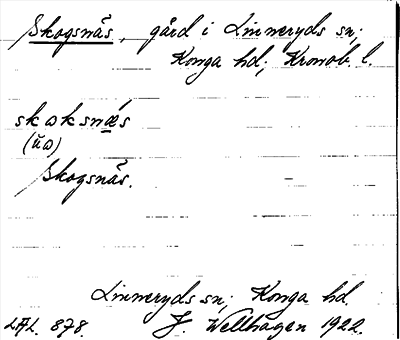 Skogsnäs, gård i Linneryds sn;
Konga hd; Kronob. l.
skɷksnæ̀s
(ŭɷ)
Skogsnäs.
Linneryds sn; Konga hd.
LAL. 878. J. Wellhagen 1922.